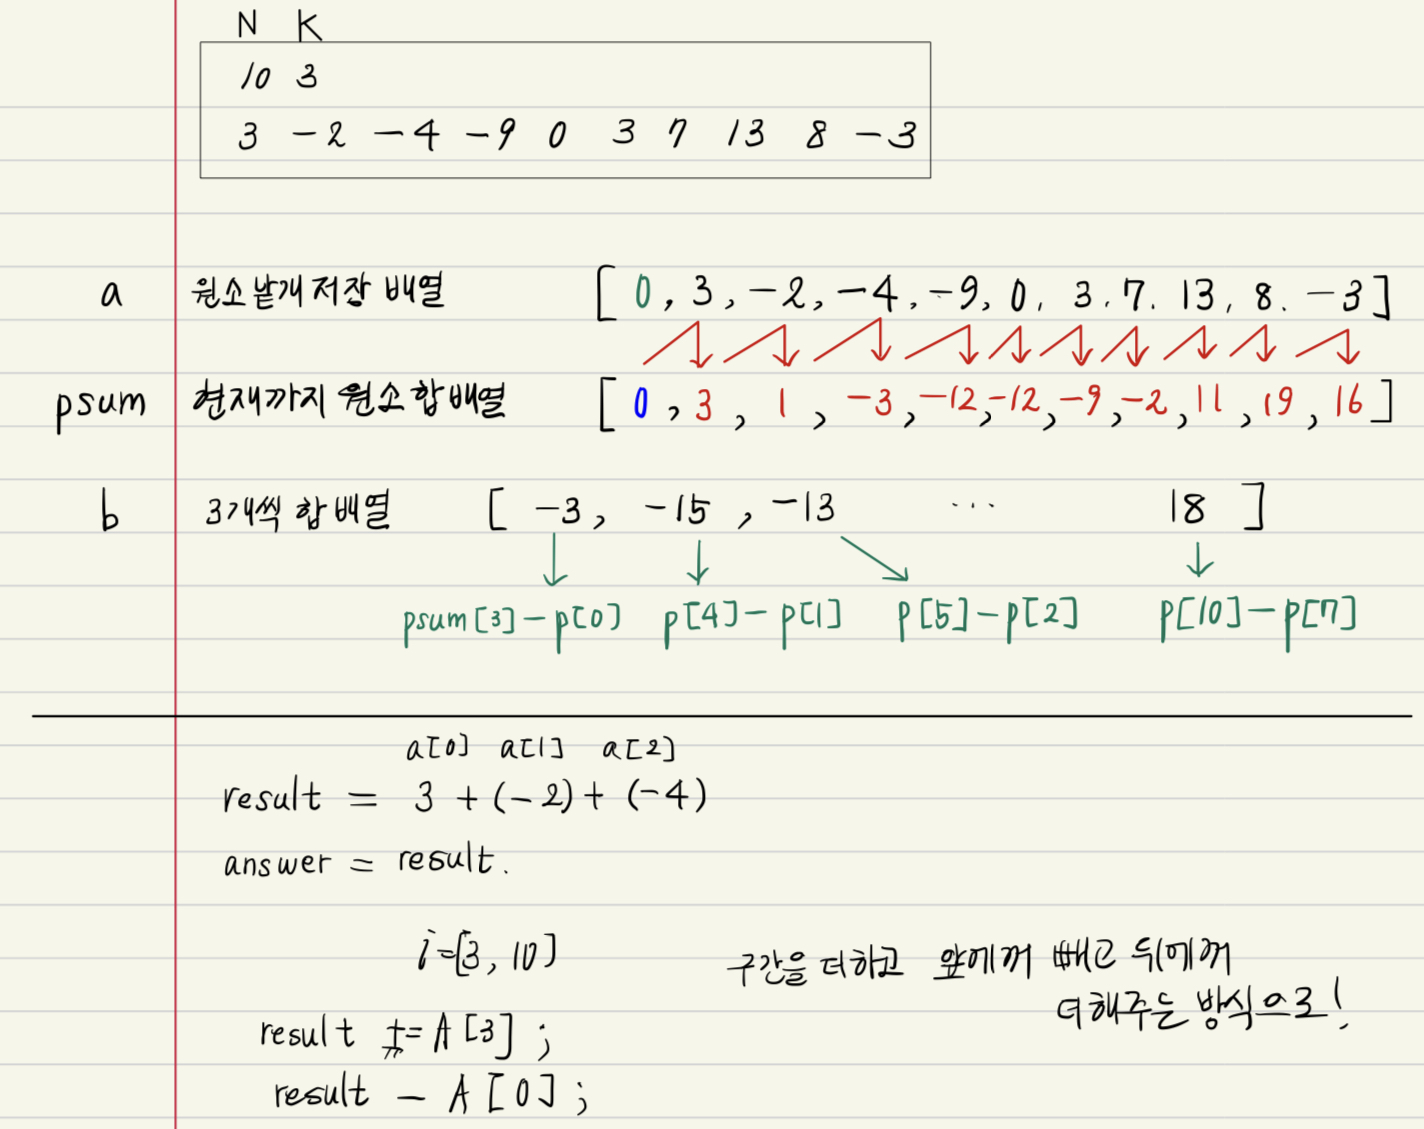 N K
10 3
3 -2 -4 -9 0 3 7 13 8 -3
a 원소 낱개 저장 배열 [ 0, 3, -2, -4, -9, 0, 3, 7. 13, 8. -3 ]
psum 현재까지 원소 합 배열 [ 0, 3, 1, -3, -12, -12, -9, -2, 11, 19, 16 ]
b 3개씩 합 배열 [ -3, -15, -13 ... 18 ]
psum[3]-p[0] p[4]-p[1] p[5]-p[2] p[10]-p[7]
a[0] a[1] a[2]
result = 3 + (-2) + (-4)
answer = result.
i=[3, 10]
구간을 더하고 앞에꺼 빼고 뒤에꺼
더해주는 방식으로!
result += A[3] ;
result - A[0] ;